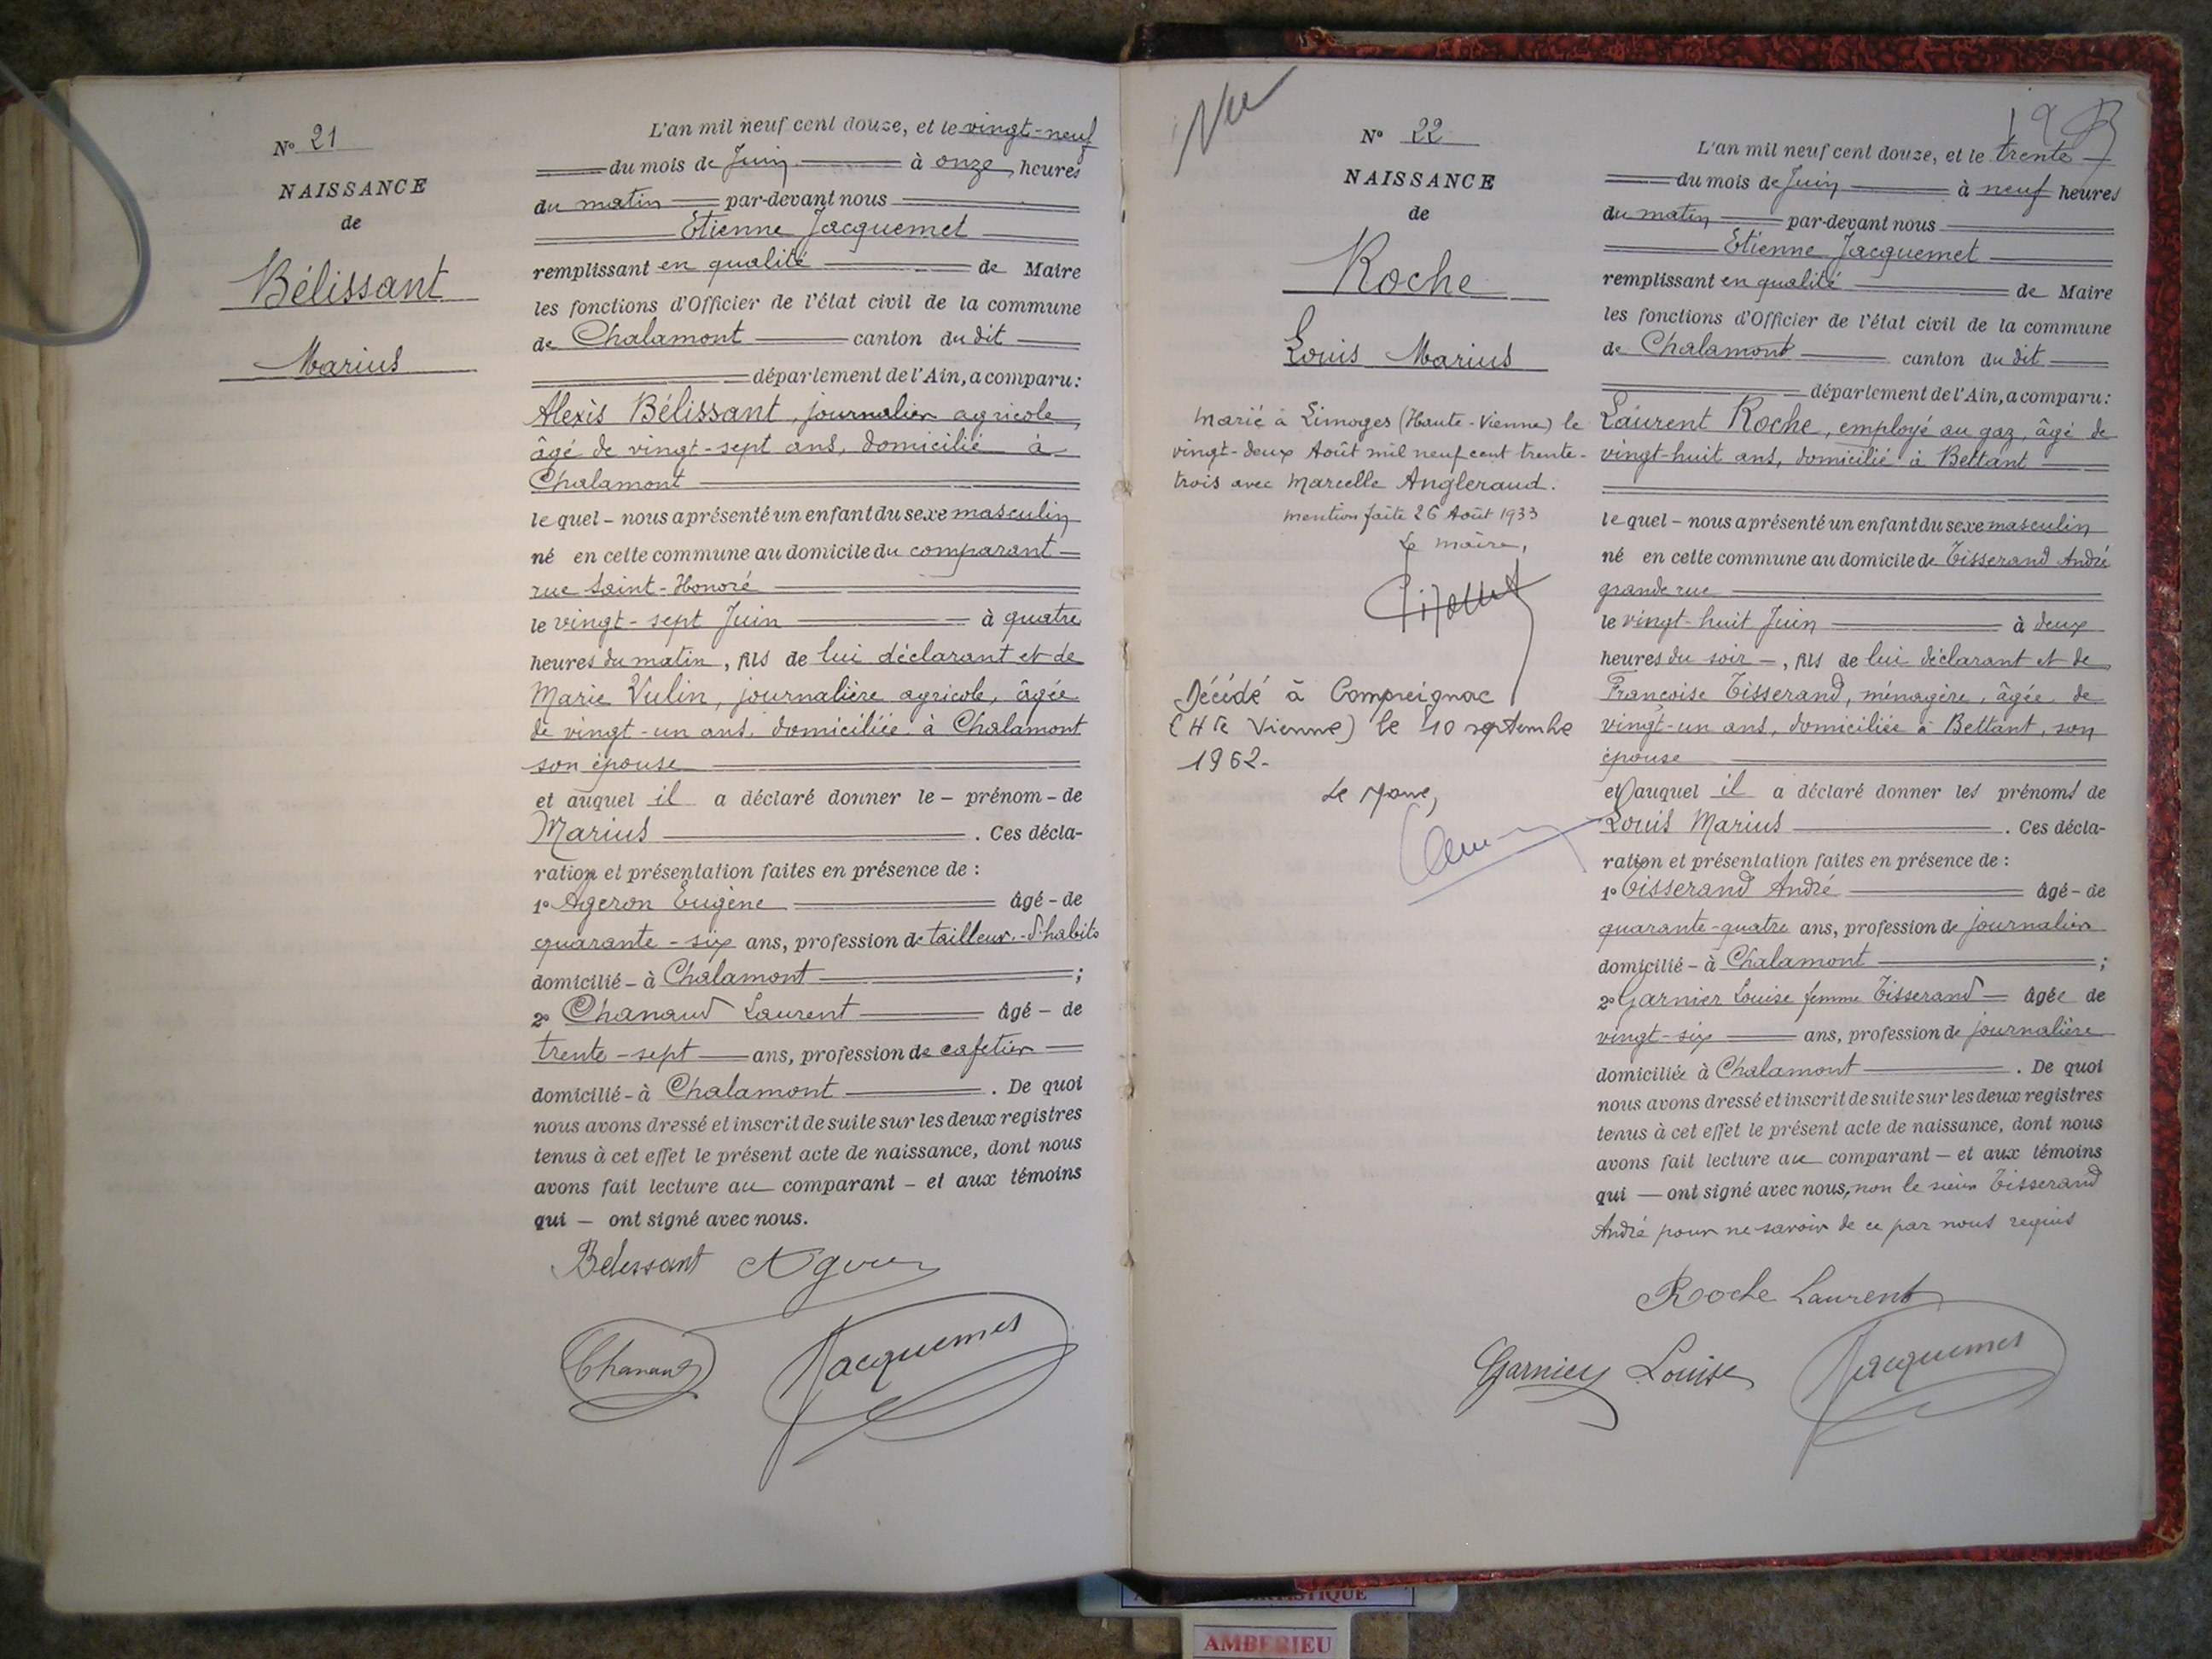 N° 21
NAISSANCE
de
Bélissant
Marius
L'an mil neuf cent douze, et le vingt-neuf
du mois de Juin à onze heures
du matin par-devant nous
Etienne Jacquemet
remplissant en qualité de Maire
les fonctions d'Officier de l'état civil de la commune
de Chalamont canton du dit
département de l'Ain, a comparu:
Alexis Bélissant, journalier agricole,
âgé de vingt-sept ans, domicilié à
Chalamont
le quel - nous a présenté un enfant du sexe masculin
né en cette commune au domicile du comparant
rue Saint-Honoré
le vingt-sept Juin à quatre
heures du matin, fils de lui déclarant et de
Marie Vulin, journalière agricole, âgée
de vingt-un ans, domiciliée à Chalamont
son épouse
et auquel il a déclaré donner le - prénom - de
Marius. Ces décla-
ration et présentation faites en présence de :
1° Ageron Eugène âgé - de
quarante-six ans, profession de tailleur-d'habits
domicilié - à Chalamont ;
2° Chanaud Laurent âgé - de
trente-sept ans, profession de cafetier
domicilié - à Chalamont. De quoi
nous avons dressé et inscrit de suite sur les deux registres
tenus à cet effet le présent acte de naissance, dont nous
avons fait lecture au comparant - et aux témoins
qui - ont signé avec nous.
Belissant Ageron
Chanaud Jacquemet
Vu
N° 22
NAISSANCE
de
Roche
Louis Marius
Marié à Limoges (Haute-Vienne) le
vingt-deux Août mil neuf cent trente-
trois avec Marcelle Angleraud.
mention faite 26 Août 1933
Le maire,
Décédé à Compreignac
(Hte Vienne) le 10 septembre
1962-
Le Maire,
L'an mil neuf cent douze, et le trente
du mois de Juin à neuf heures
du matin par-devant nous
Etienne Jacquemet
remplissant en qualité de Maire
les fonctions d'Officier de l'état civil de la commune
de Chalamont canton du dit
département de l'Ain, a comparu:
Laurent Roche, employé au gaz, âgé de
vingt-huit ans, domicilié à Bettant
le quel - nous a présenté un enfant du sexe masculin
né en cette commune au domicile de Tisserand André
grande rue
le vingt-huit Juin à deux
heures du soir -, fils de lui déclarant et de
Françoise Tisserand, ménagère, âgée de
vingt-un ans, domiciliée à Bettant, son
épouse
et auquel il a déclaré donner les prénoms de
Louis Marius. Ces décla-
ration et présentation faites en présence de :
1° Tisserand André âgé - de
quarante-quatre ans, profession de journalier
domicilié - à Chalamont ;
2° Garnier Louise femme Tisserand âgée de
vingt-six ans, profession de journalière
domiciliée à Chalamont. De quoi
nous avons dressé et inscrit de suite sur les deux registres
tenus à cet effet le présent acte de naissance, dont nous
avons fait lecture au comparant - et aux témoins
qui - ont signé avec nous, non le sieur Tisserand
André pour ne savoir de ce par nous requis
Roche Laurent
Garnier Louise Jacquemet
AMBERIEU